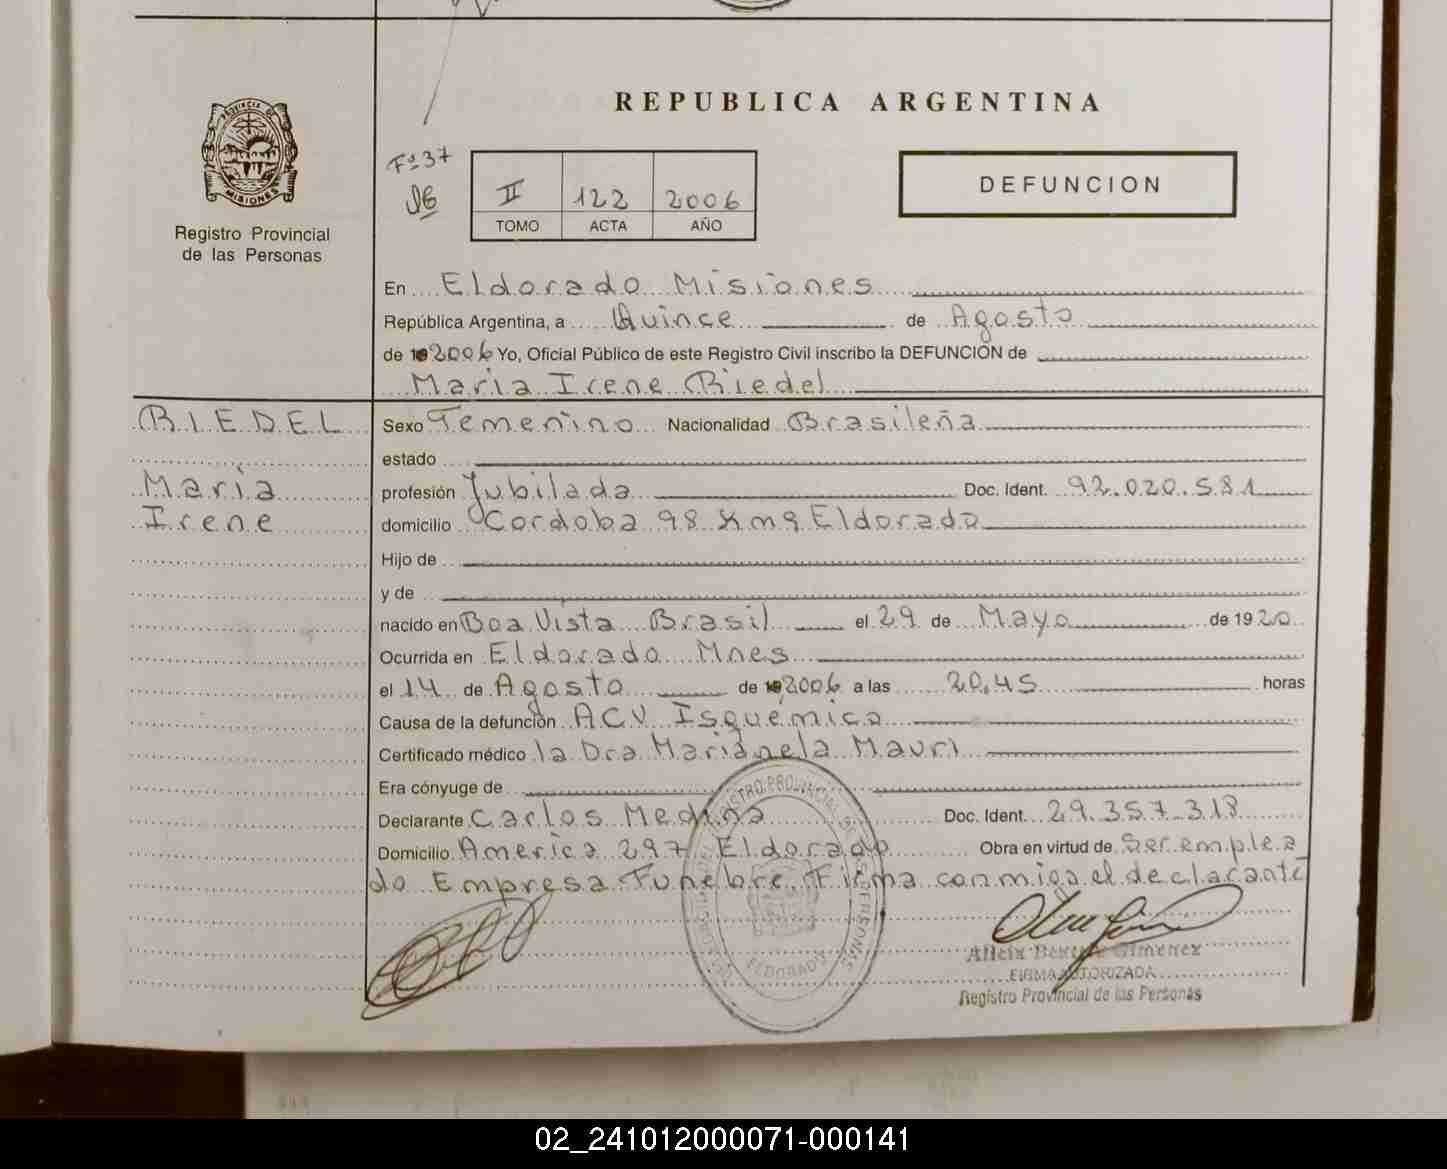 REPUBLICA ARGENTINA
PROVINCIA D
MISIONES
Registro Provincial
de las Personas
Fº 37
II 122 2006
TOMO ACTA AÑO
DEFUNCION
En Eldorado Misiones
República Argentina, a Quince de Agosto
de 2006 Yo, Oficial Público de este Registro Civil inscribo la DEFUNCION de
Maria Irene Riedel
RIEDEL
María
Irene
Sexo Femenino Nacionalidad Brasileña
estado
profesión Jubilada Doc. Ident. 92.020.581
domicilio Cordoba 98 Km 9 Eldorado
Hijo de
y de
nacido en Boa Vista Brasil el 29 de Mayo de 1920
Ocurrida en Eldorado Mnes
el 14 de Agosto de 2006 a las 20,45 horas
Causa de la defunción ACV Isquémico
Certificado médico la Dra Marianela Mauri
Era cónyuge de
Declarante Carlos Medina Doc. Ident. 29.357.318
Domicilio America 297 Eldorado Obra en virtud de Ser emplea
do Empresa Funebre. Firma conmigo el declarante
REGISTRO PROVINCIAL DE LAS PERSONAS
ELDORADO
Alicia Gimenez
FIRMA AUTORIZADA
Registro Provincial de las Personas
02_241012000071-000141